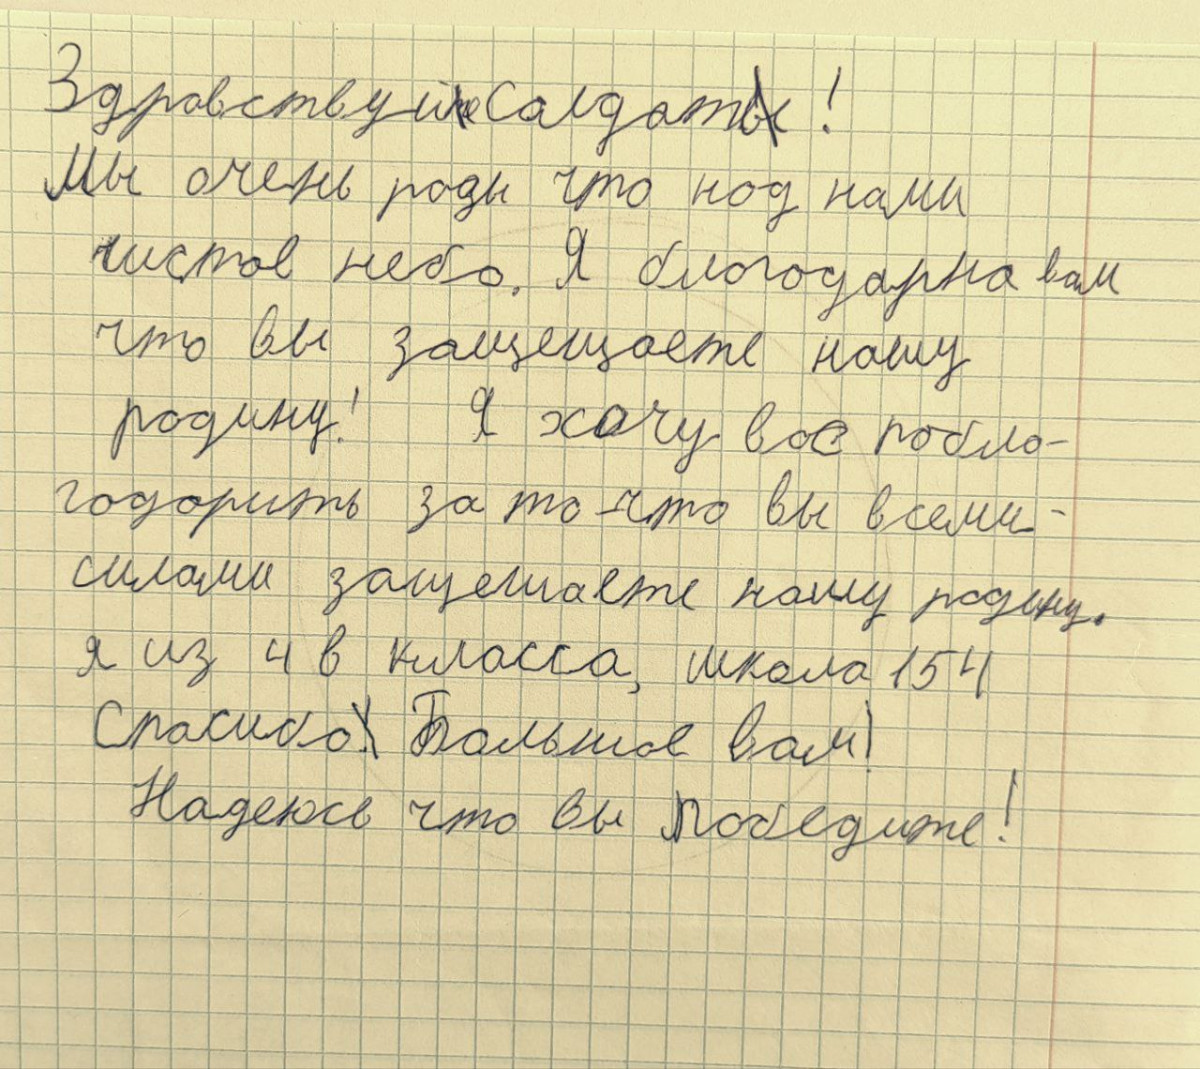 Здравствуй Салдат!
Мы очень рады что над нами
чистое небо. Я благодарна вам
что вы защещаете нашу
родину! Я хачу вас побла-
годорить за то что вы всеми-
силами защешаете нашу родину.
я из 4 в класса, школа 154
Спасибо Большое вам!
Надеюсь что вы Победите!